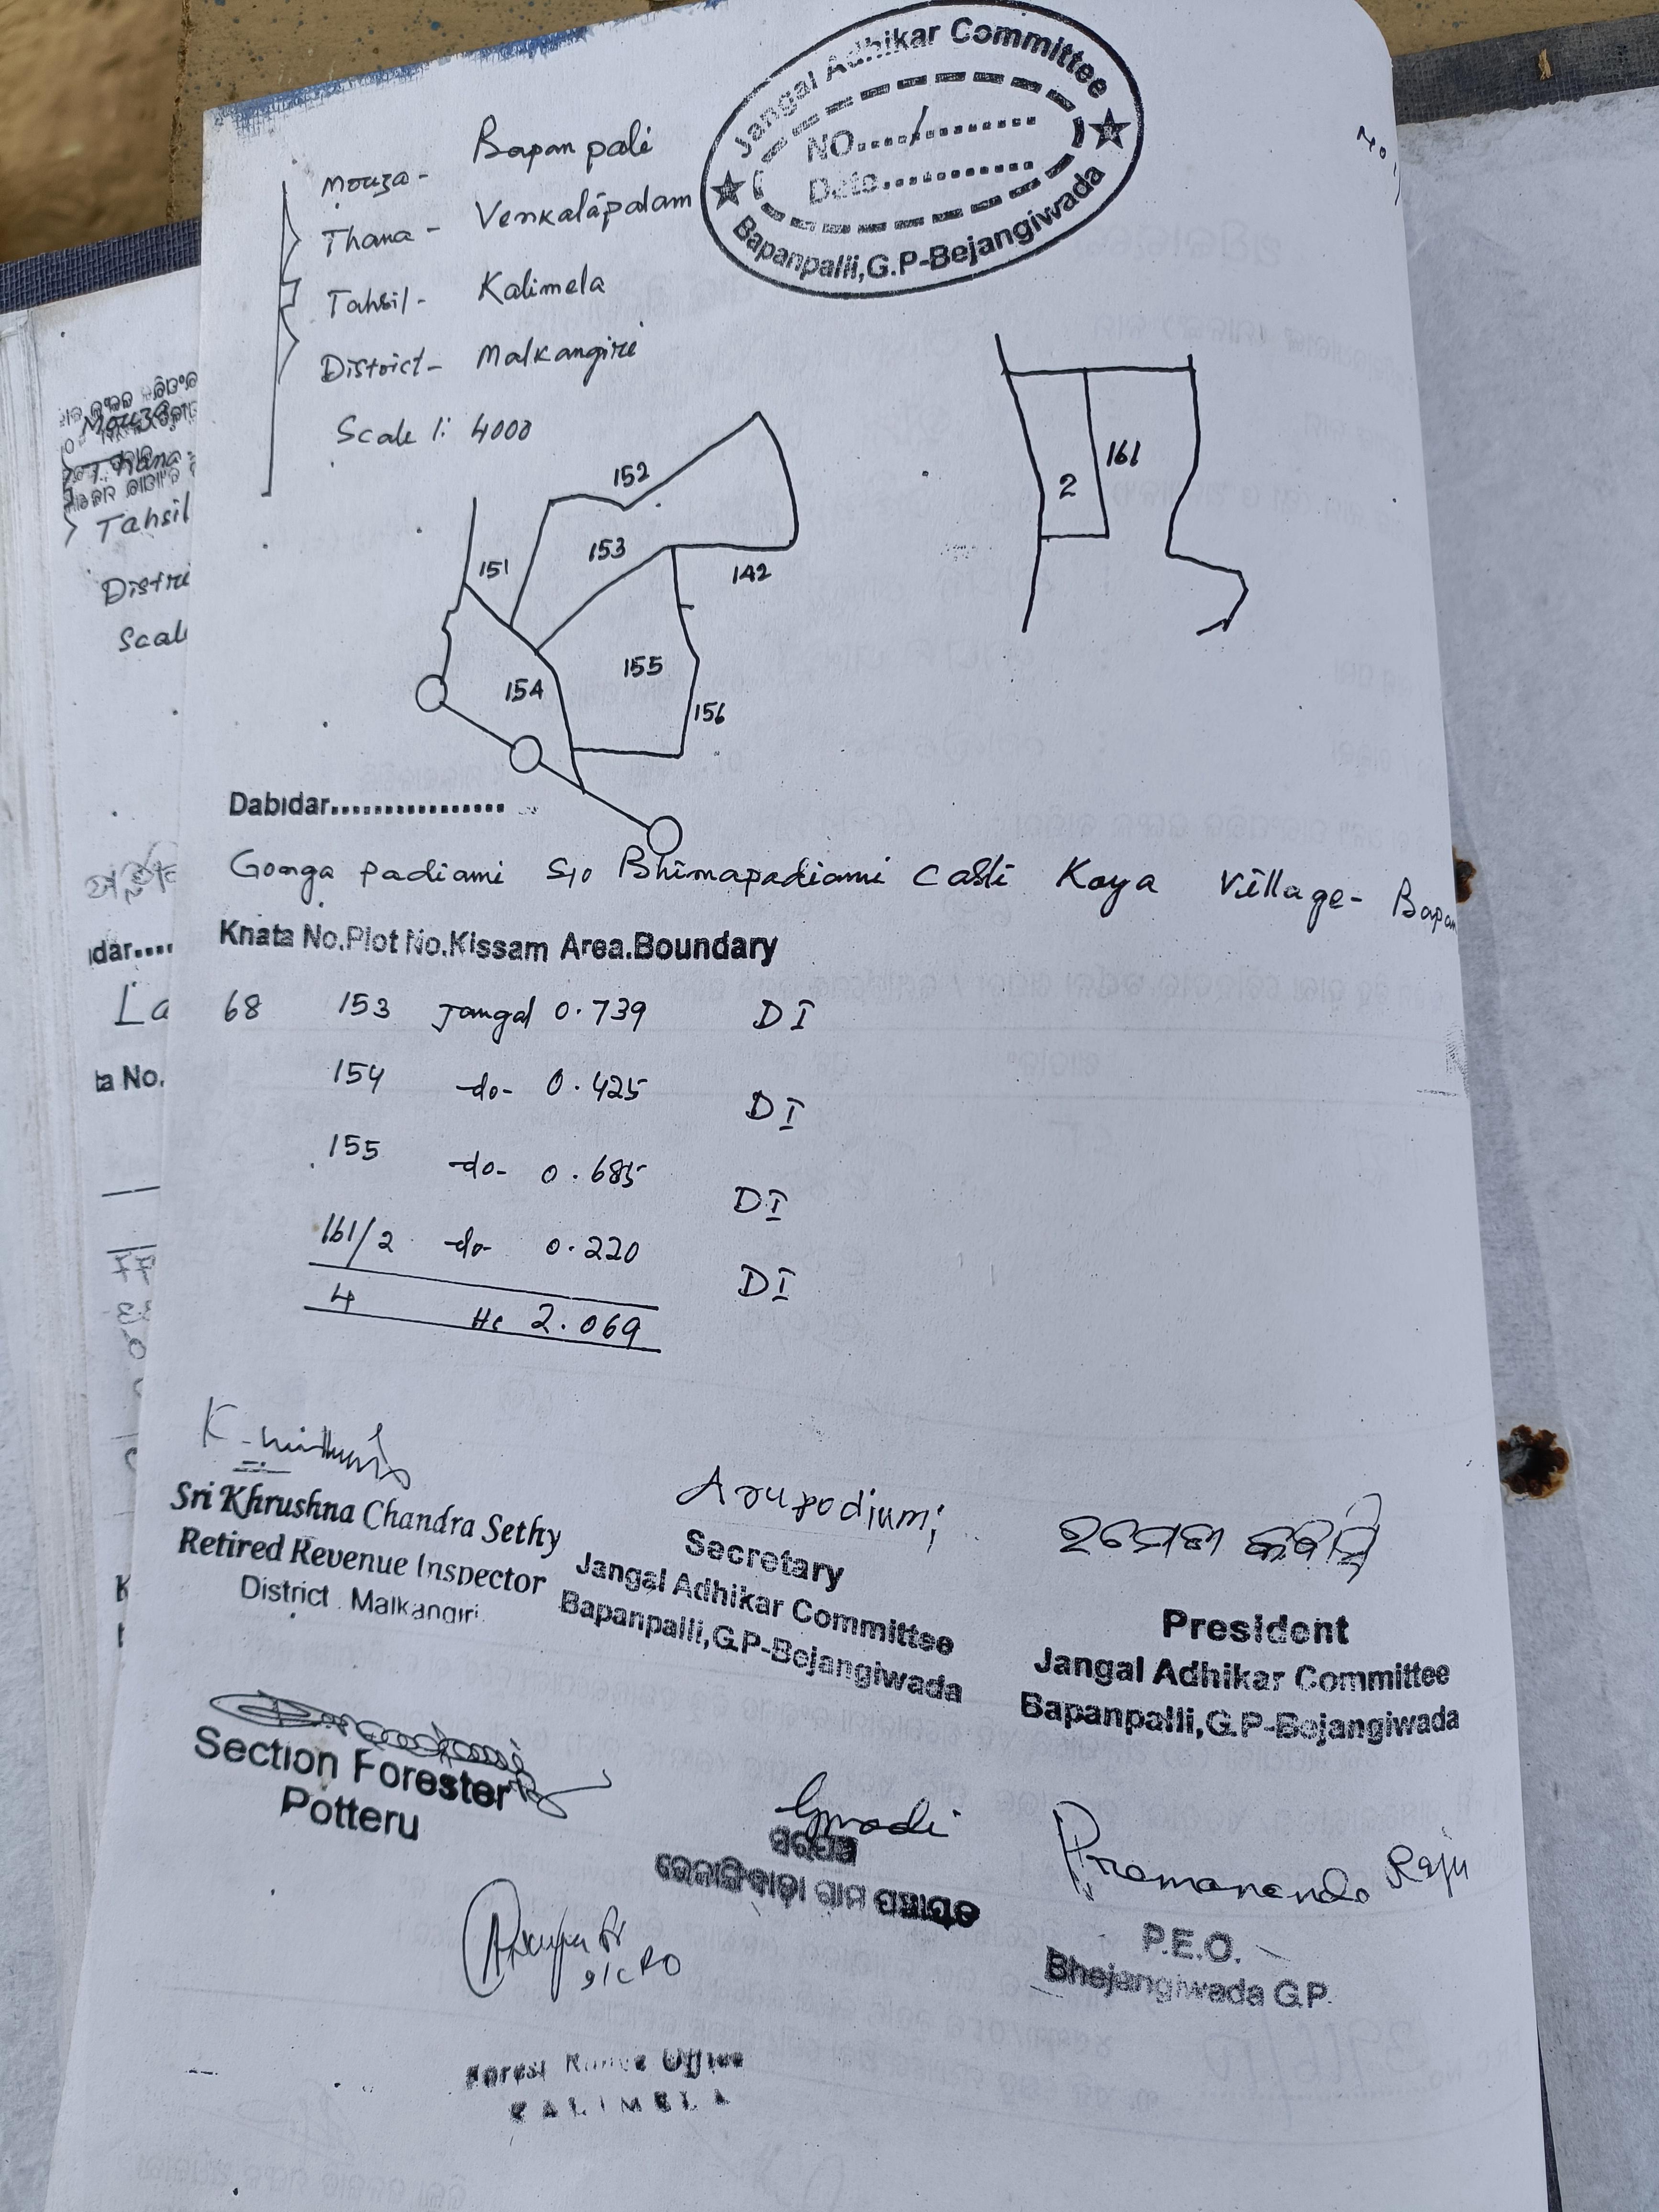 Jangal Adhikar Committee
NO..../..............
Date..............
Bapanpalli,G.P-Bejangiwada
Mouza- Bapanpali
Thana- Venkalapalam
Tahsil- Kalimela
District- Malkangiri
Scale 1: 4000
152
151
153
142
154
155
156
2
161
Dabidar.................
Gonga padiami S/o Bhimapadiami Casti Koya Village- Bapan
Khata No.Plot No.Kissam Area.Boundary
68 153 Jangal 0.739 DI
154 -do- 0.425 DI
155 -do- 0.685 DI
161/2 -do- 0.220 DI
4 Hc 2.069
Sri Khrushna Chandra Sethy
Retired Revenue Inspector
District. Malkangiri.
Secretary
Jangal Adhikar Committee
Bapanpalli,G.P-Bejangiwada
President
Jangal Adhikar Committee
Bapanpalli,G.P-Bejangiwada
Section Forester
Potteru
ସରପଞ୍ଚ
ଭେଜାଙ୍ଗିୱାଡ଼ା ଗ୍ରାମ ପଞ୍ଚାୟତ
Pramananda Raju
P.E.O.
Bhejangiwada G.P.
Forest Range Office
KALIMELA
Mouza
Thana-
Tahsil
Distri
Scale
idar....
La
ta No.